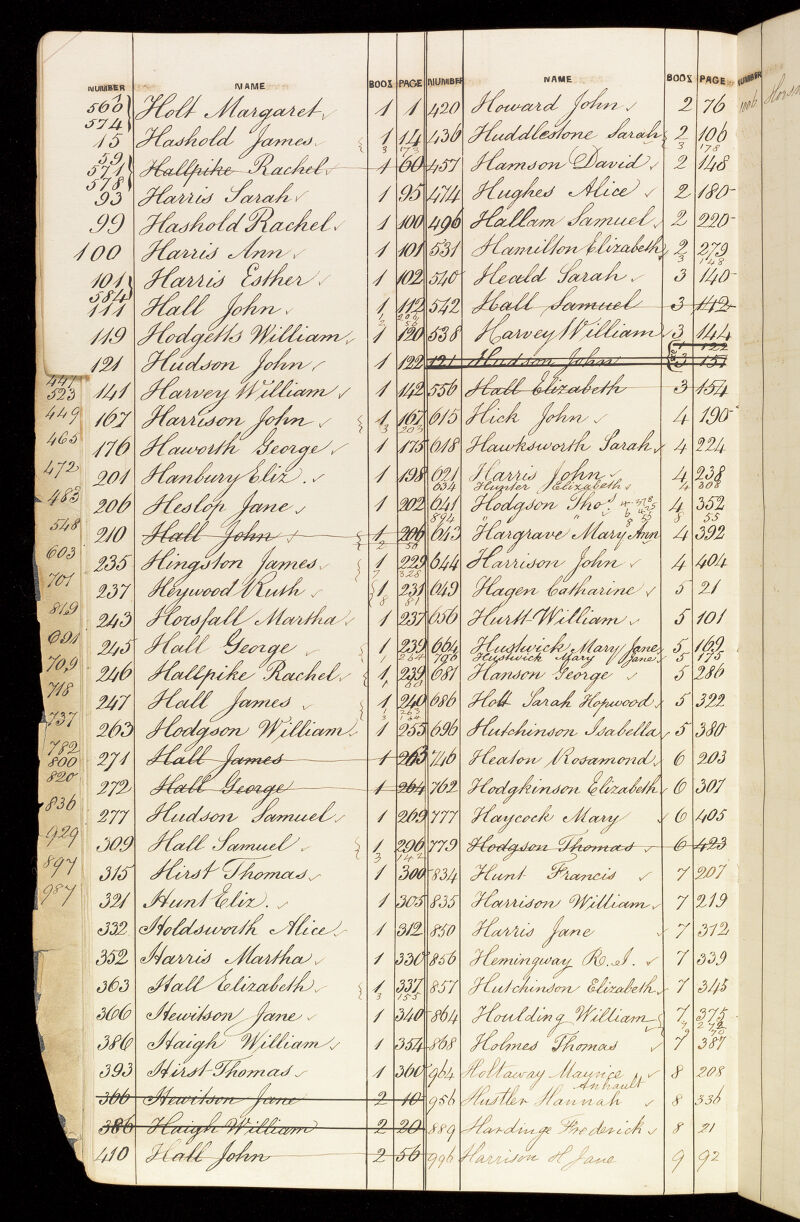 NUMBER NAME BOOK PAGE
560 574 Holt Margaret 1 1
15 Hashold James 1 14
3 173
59 571 578 Hallpike Rachel 1 60
93 Harris Sarah 1 95
99 Hashold Rachel 1 100
100 Harris Ann 1 101
101 584 Harris Esther 1 102
111 Hall John 1 112
119 Hodgetts William 1 120
121 Hudson John 1 122
141 Harvey William 1 142
167 Harrison John 1 167
3 203
176 Haworth George 1 175
201 Hanbury Eliz. 1 198
206 Heslop Jane 1 202
210 Hall John 1 206
2 56
235 Hingston James 1 229
7 328
237 Heywood Ruth 1 231
8 81
243 Horsfall Martha 1 237
245 Hall George 1 239
1 264
246 Hallpike Rachel 1 239
1 60
247 Hall James 1 240
1 263
263 Hodgson William 1 255
271 Hall James 1 263
272 Hall George 1 264
277 Hudson Samuel 1 269
309 Hall Samuel 1 296
3 142
315 Hirst Thomas 1 300
321 Hunt Eliz. 1 305
332 Holdsworth Alice 1 312
352 Harris Martha 1 330
363 Hall Elizabeth 1 337
3 155
366 Hewitson Jane 1 340
386 Haigh William 1 354
393 Hirst Thomas 1 360
366 Hewitson Jane 2 10
386 Haigh William 2 20
410 Hall John 2 56
NUMBER NAME BOOK PAGE
420 Howard John 2 76
436 Huddlestone Sarah 2 106
3 178
457 Hamson David 2 148
474 Hughes Alice 2 180
496 Hallam Samuel 2 220
531 Hamilton Elizabeth 2 279
3 148
540 Heald Sarah 3 140
542 Hall Samuel 3 142
538 Harvey William 3 144
1 122
121 Hudson John 3 151
556 Hall Elizabeth 3 154
615 Hick John 4 190
618 Hawksworth Sarah 4 224
621 Harris John 4 238
634 Hunter Elizabeth 4 308
641 Hodgson Thos 4 352
894 " " 8 55
643 Hargrave Mary Ann 4 392
644 Harrison John 4 404
649 Hagen Catharine 5 21
656 Hurtt William 5 101
664 Hustwick Mary Jane 5 169
796 Hustwick Mary Jane 5 175
681 Hanson George 5 286
686 Holt Sarah Hopwood 5 322
696 Hutchinson Isabella 5 380
746 Heaton Rosamond 6 203
762 Hodgkinson Elizabeth 6 307
777 Haycock Mary 6 405
779 Hodgson Thomas 6 423
834 Hunt Francis 7 207
835 Harrison William 7 219
850 Harris Jane 7 312
856 Hemingway R. J. 7 339
857 Hutchinson Elizabeth 7 345
864 Houlding William 7 375
868 Holmes Thomas 7 387
964 Holtaway Maurice 8 208
Anhault
956 Hustler Hannah 8 336
889 Hardinge Frederick 8 21
996 Harrison H Jane 9 92
NUMBER
1006
447
523
449
465
472
483
548
603
701
819
691
709
718
737
782
800
820
836
929
897
987